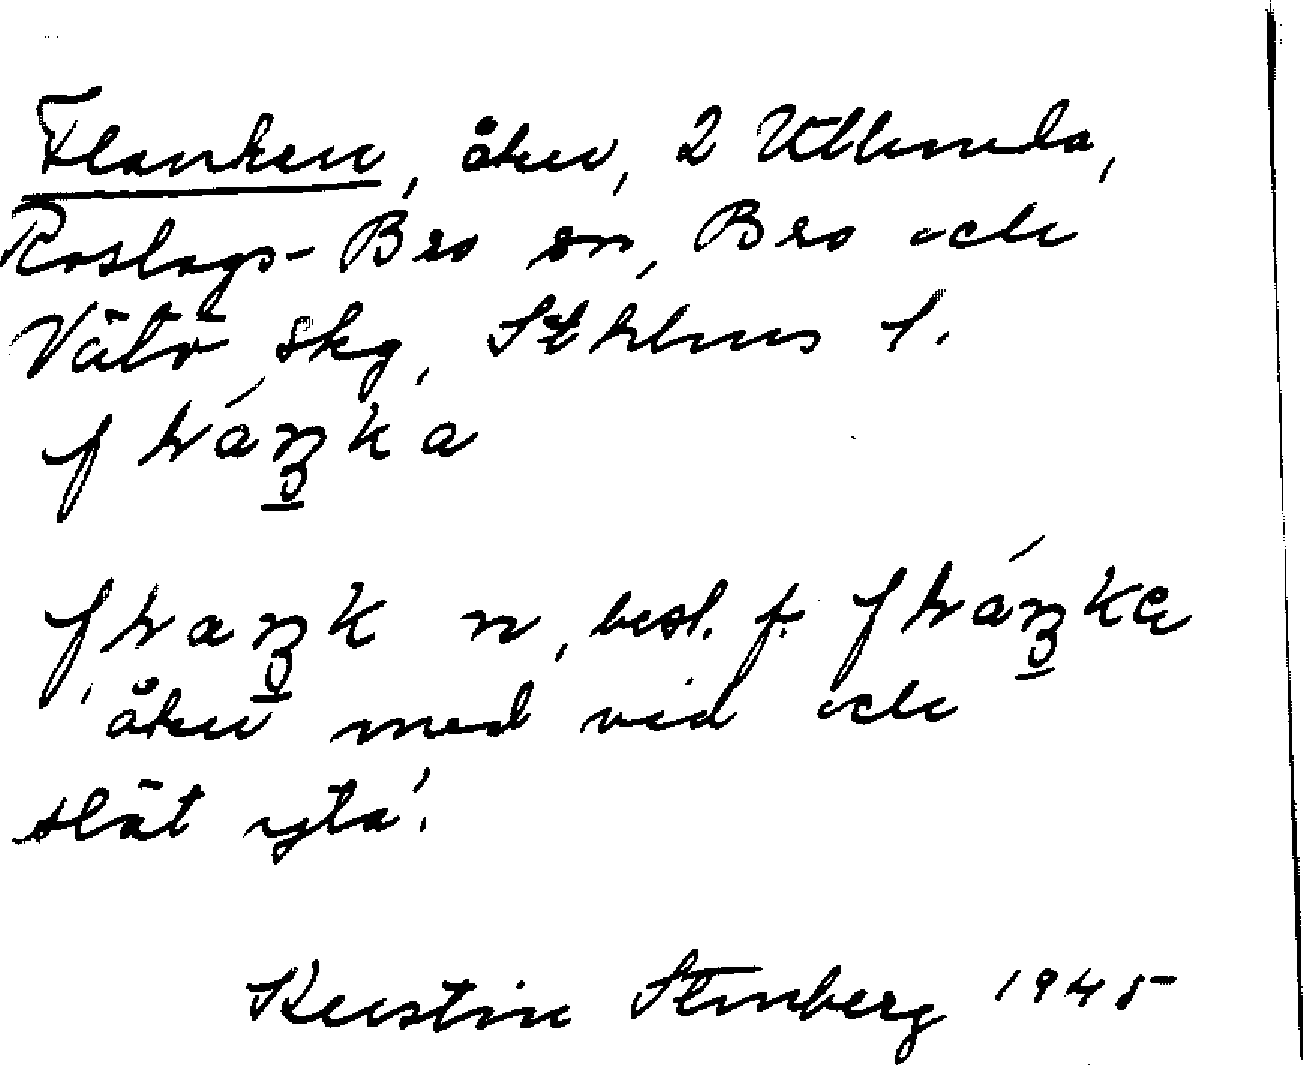 Flanken, åker, 2 Utlunda,
Roslags-Bro sn, Bro och
Vätö skg, Sthlms l.
best. f.
'åker med vid och
slät yta'.
Kerstin Stenberg 1945